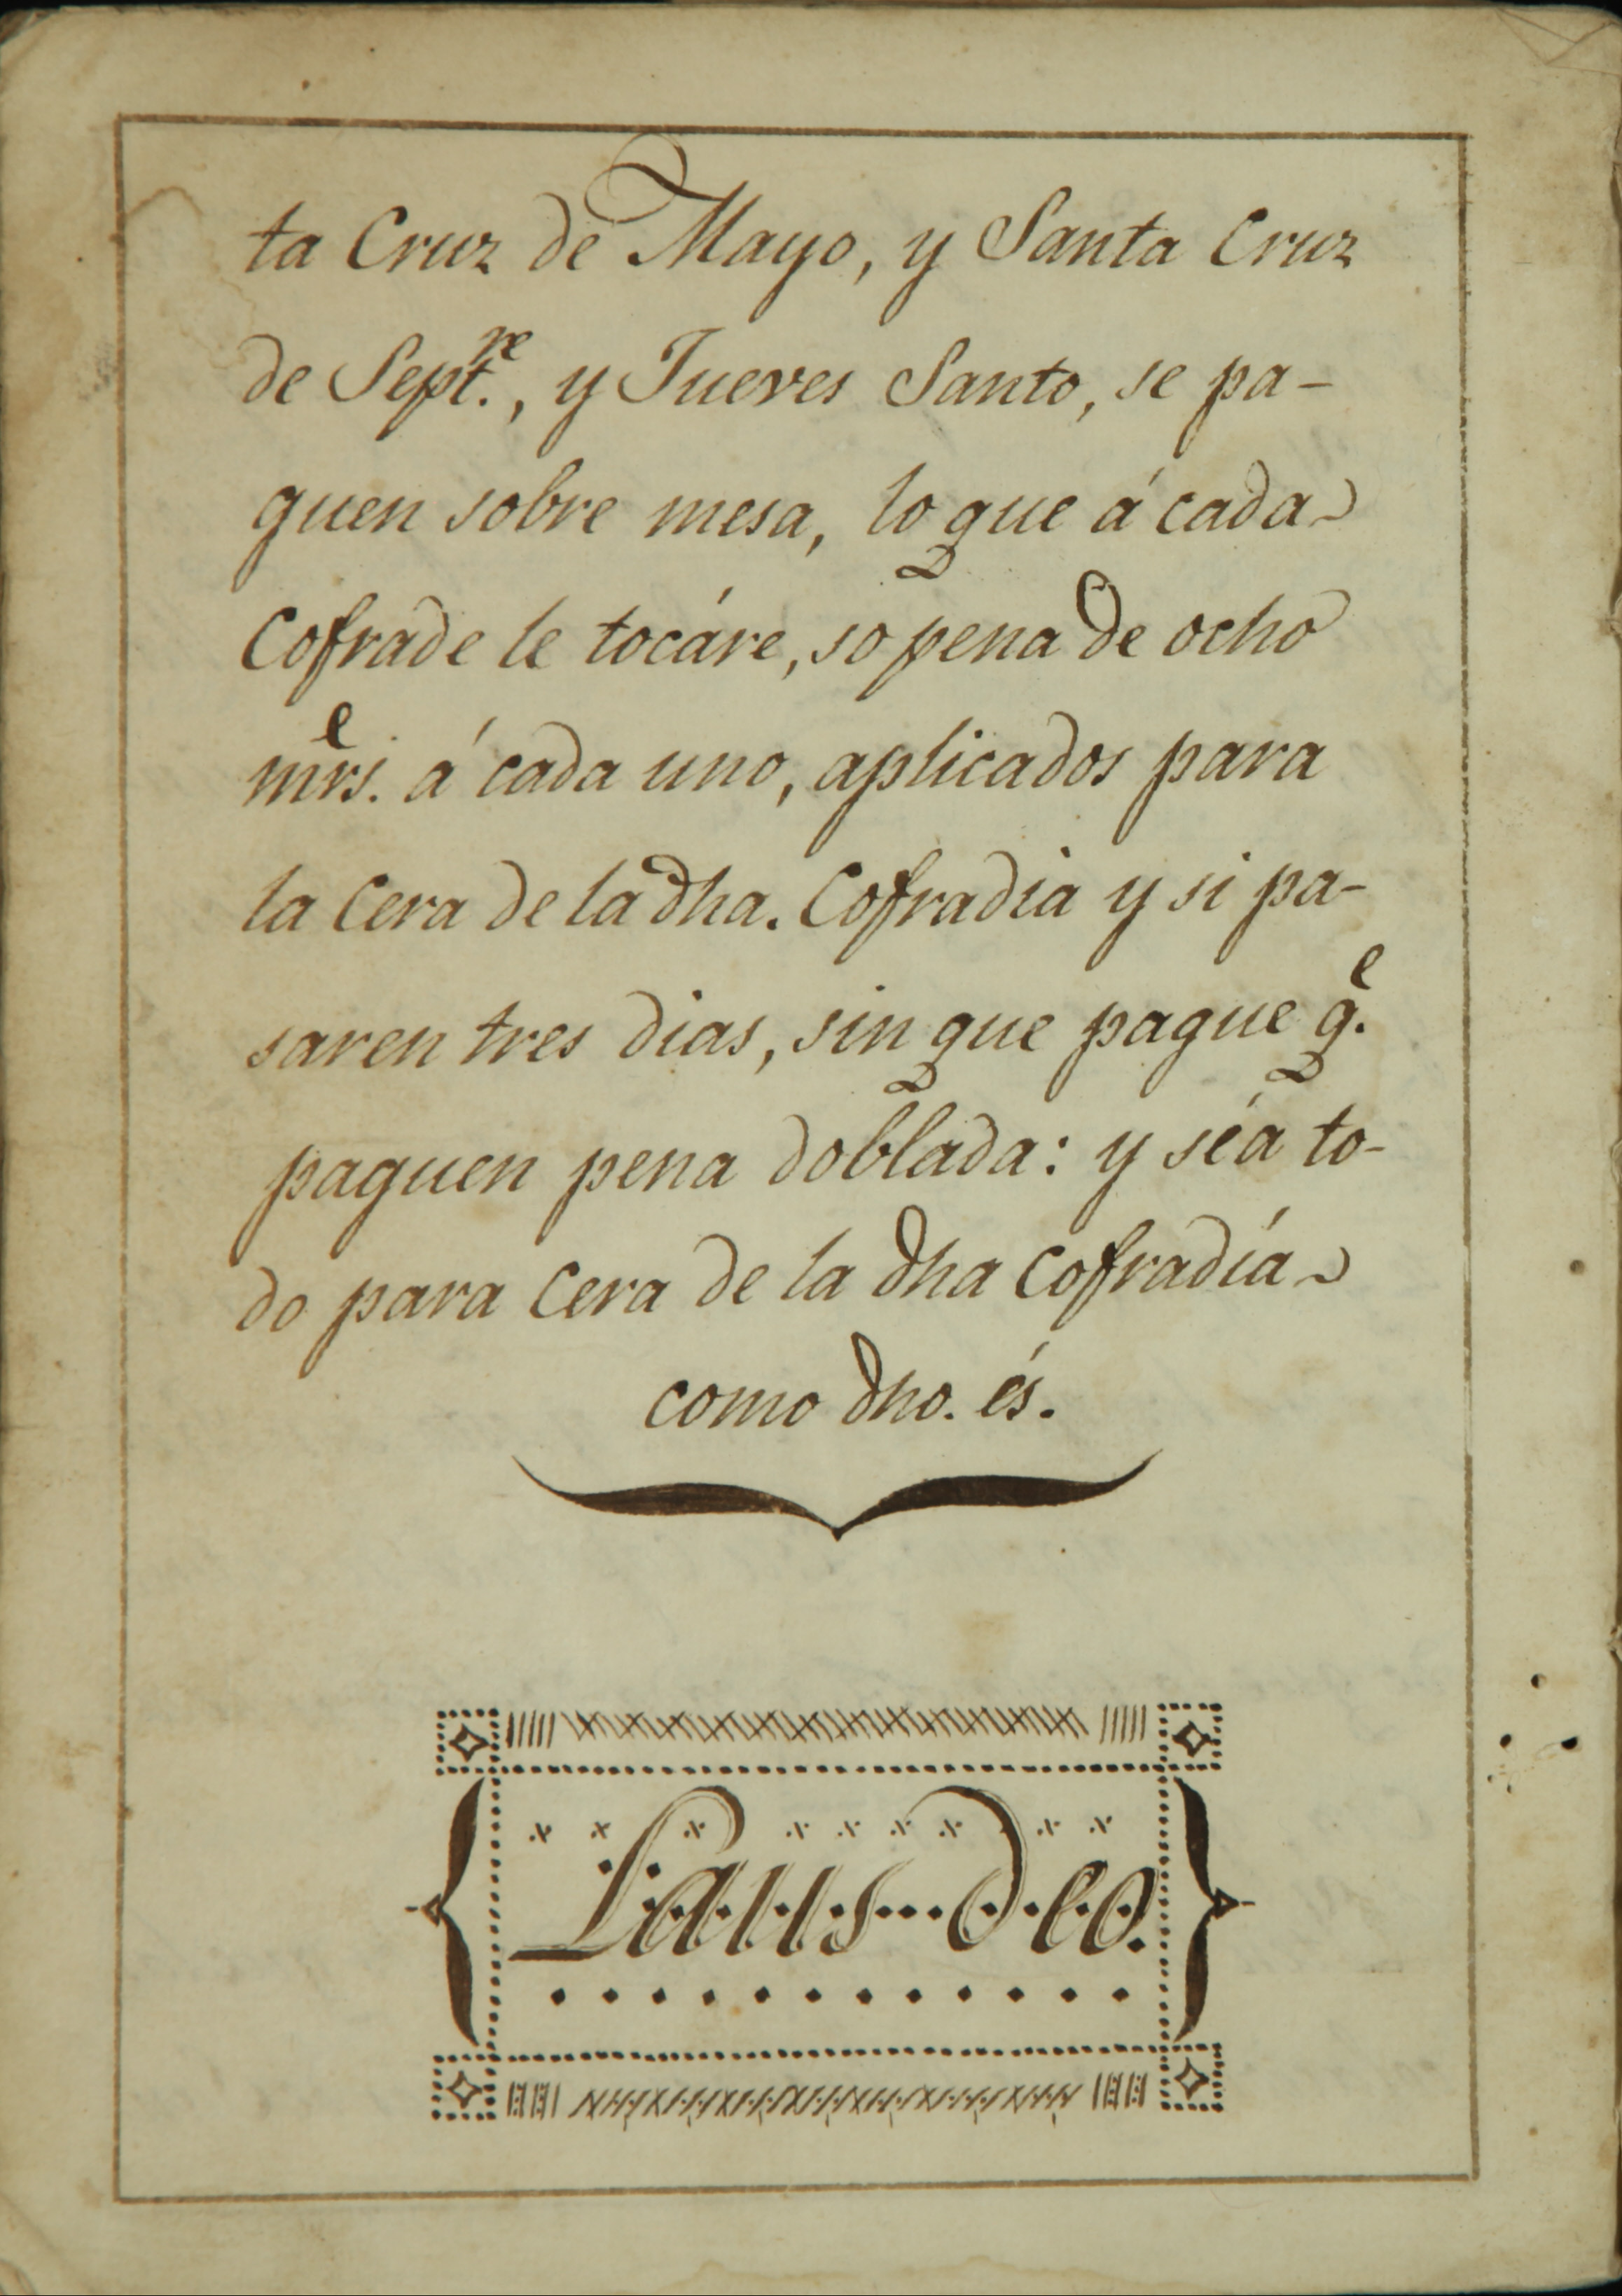 ta Cruz de Mayo, y Santa Cruz
de Sept.re, y Jueves Santo, se pa-
guen sobre mesa, lo que á cada
Cofrade le tocáre, so pena de ocho
mrs.e á cada uno, aplicados para
la Cera de la dha. Cofradia y si pa-
saren tres dias, sin que pague q.e
paguen pena doblada: y séa to-
do para Cera de la dha Cofradía
como dho. és.
Laus Deo.